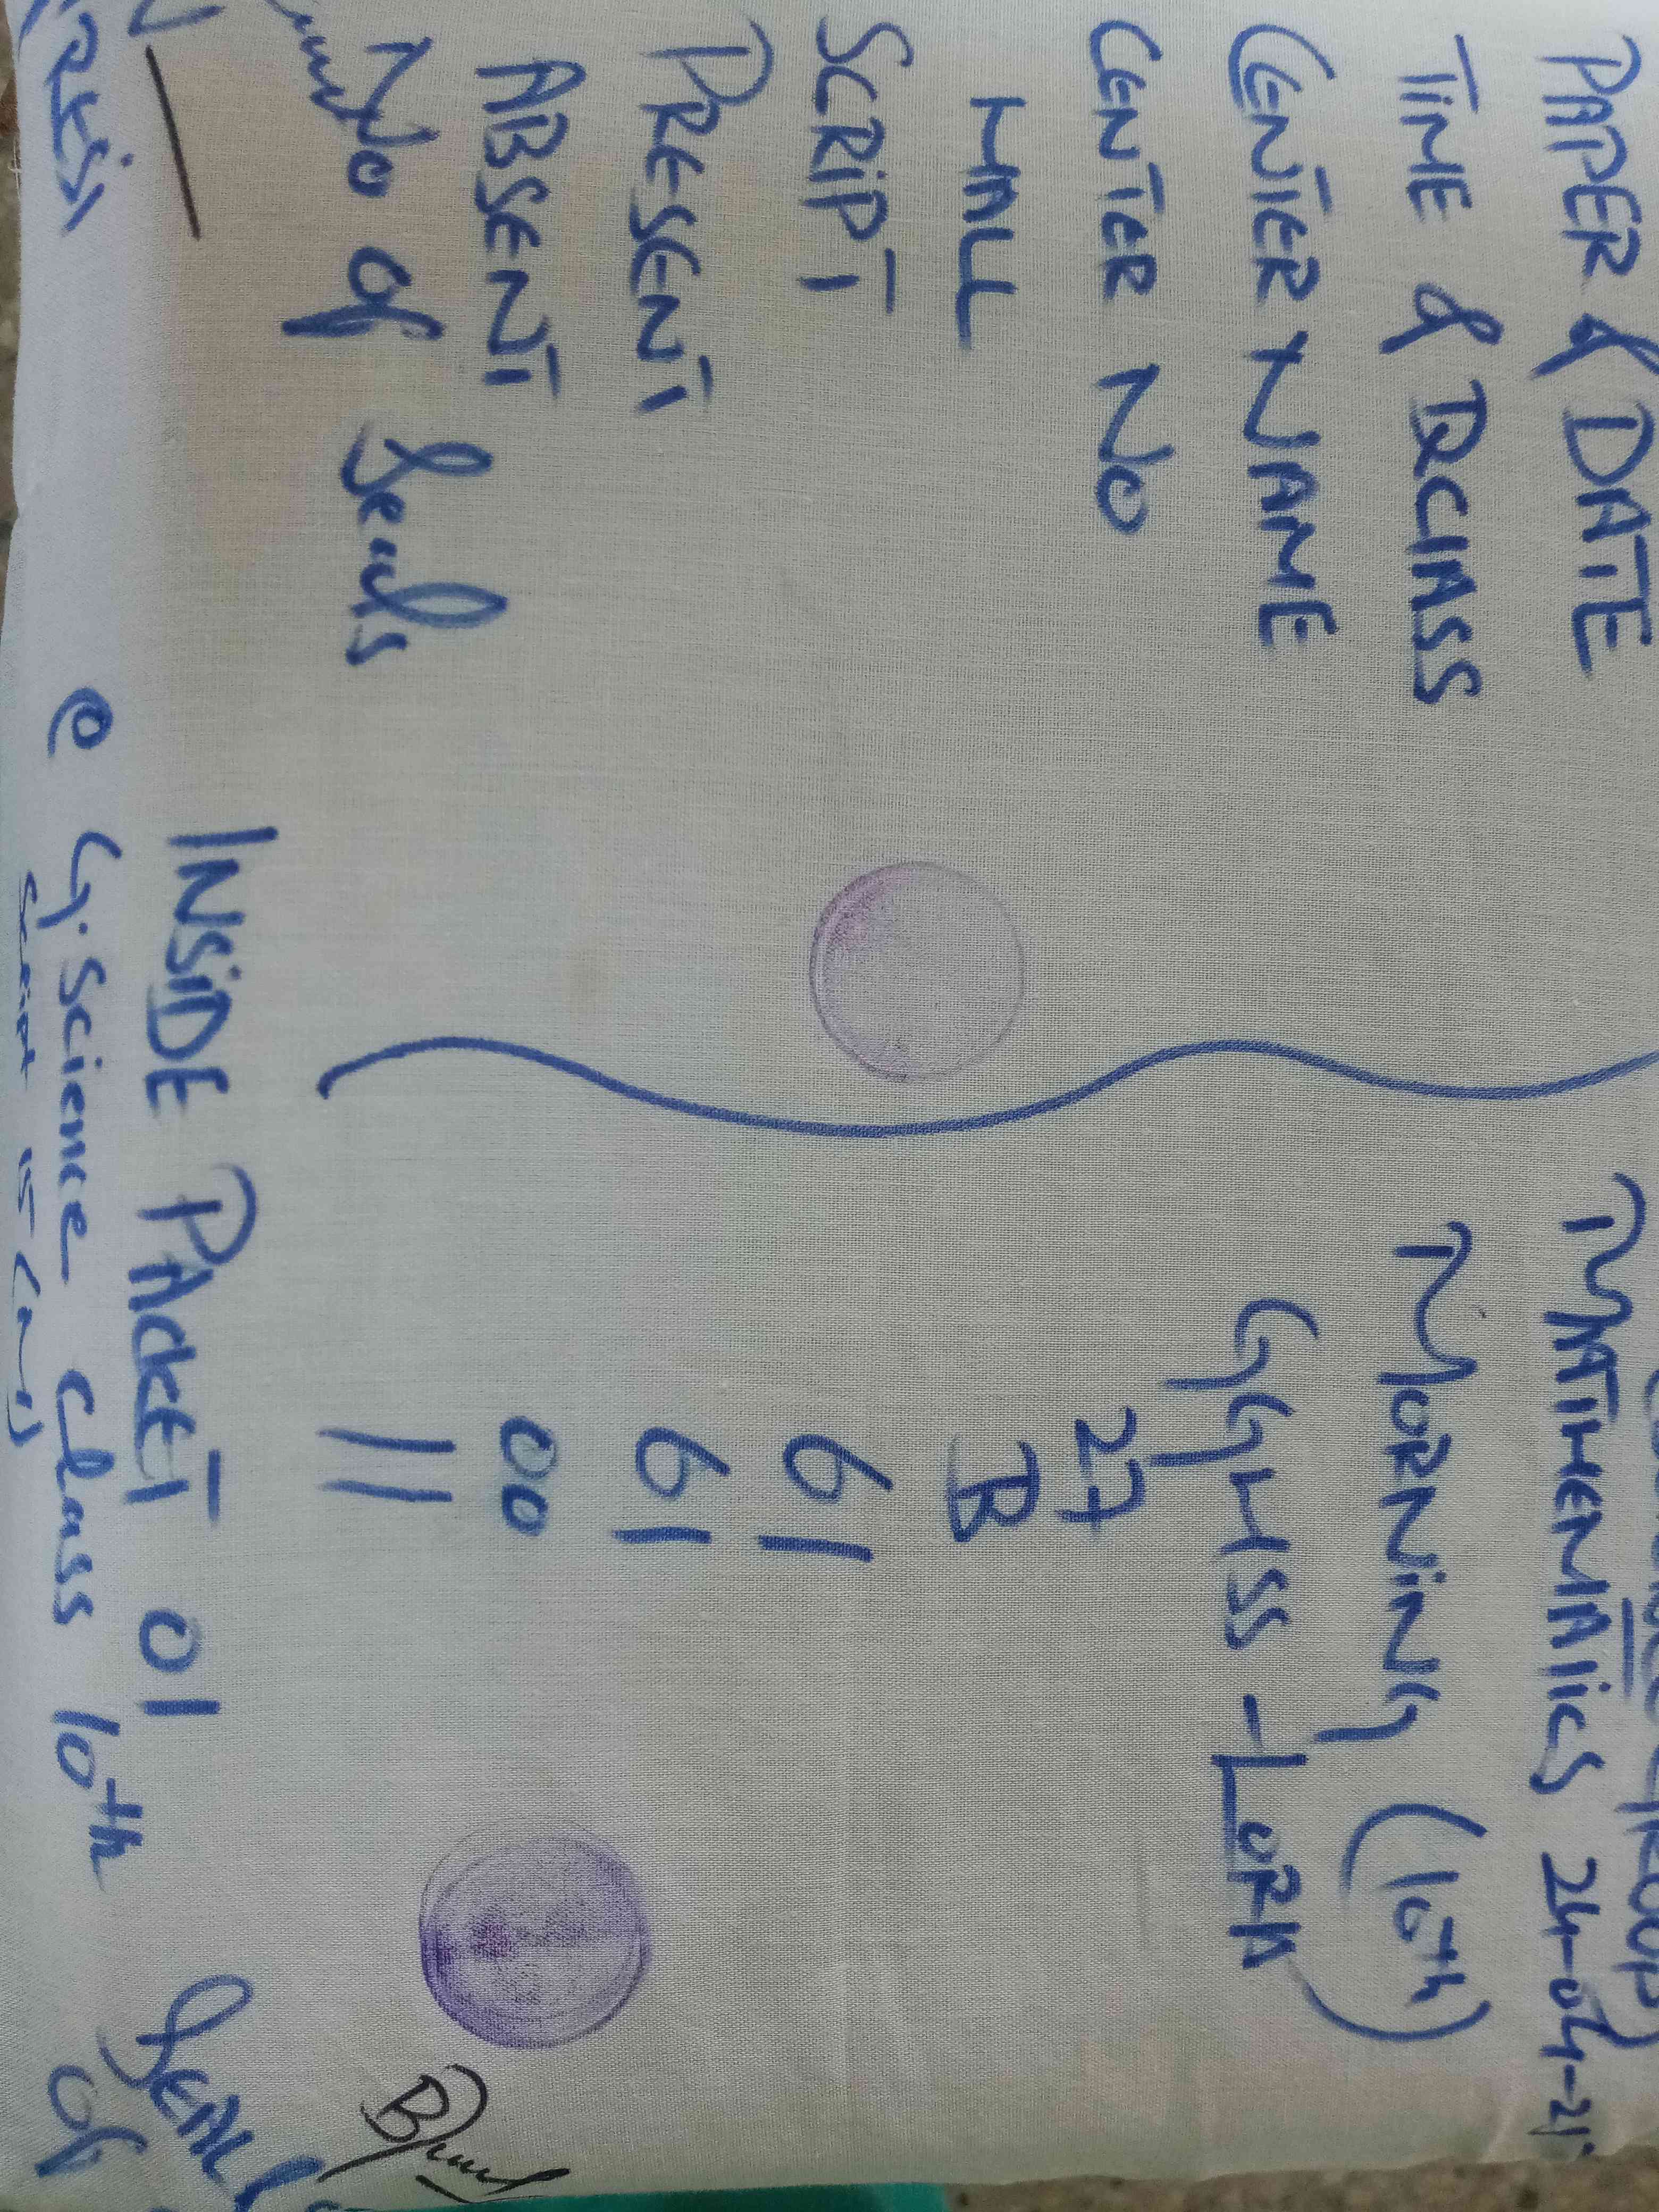 PAPER & DATE MATHEMATICS 24-04-21
TIME & CLASS MORNING (10th)
CENTER NAME GGHSS - LORA
CENTER NO 27
HALL B
SCRIPT 61
PRESENT 61
ABSENT 00
No of Seals 11
INSIDE PACKET 01 SEAL
G. Science Class 10th of